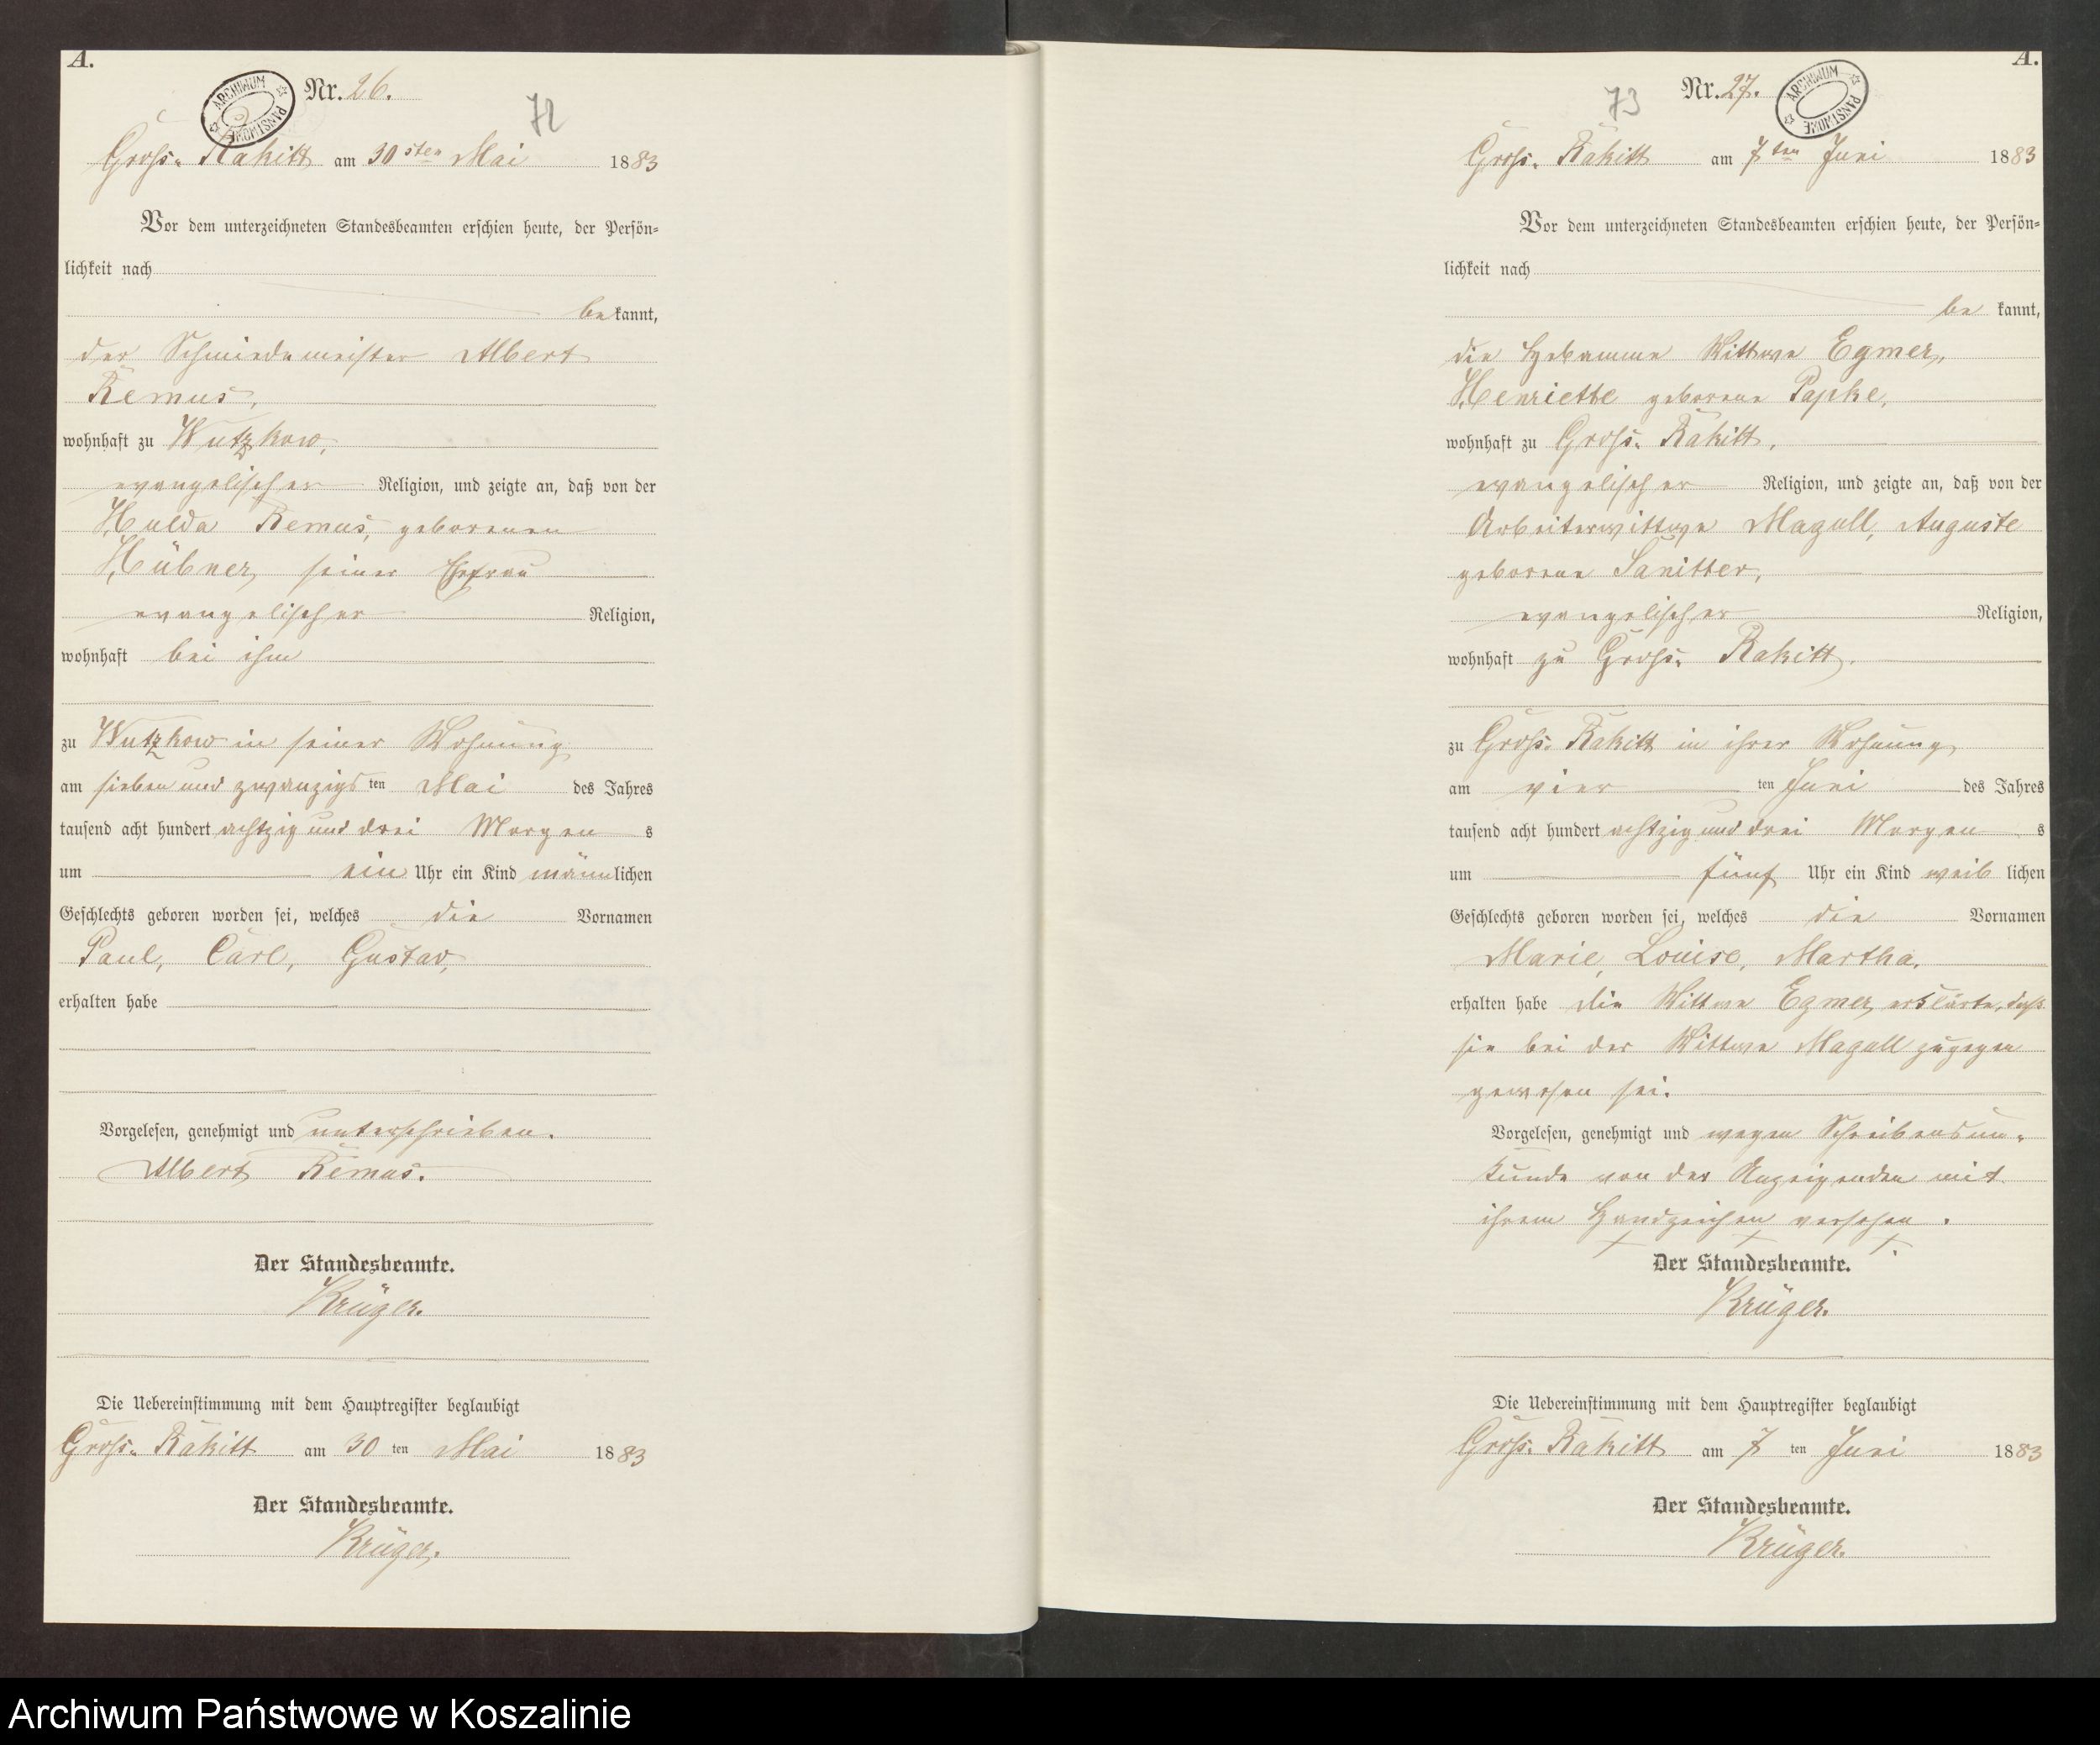 A.
Nr. 26.
ARCHIWUM PAŃSTWOWE
72
Gross-Rakitt am 30sten Mai 1883
Vor dem unterzeichneten Standesbeamten erschien heute, der Persön-
lichkeit nach
bekannt,
der Schmiedemeister Albert
Remus,
wohnhaft zu Wutzkow,
evangelischer Religion, und zeigte an, daß von der
Hulda Remus, geborenen
Hübner, seiner Ehefrau
evangelischer Religion,
wohnhaft bei ihm
zu Wutzkow in seiner Wohnung
am sieben und zwanzigsten Mai des Jahres
tausend acht hundert achtzig und drei Morgens
um ein Uhr ein Kind männlichen
Geschlechts geboren worden sei, welches die Vornamen
Paul, Carl, Gustav,
erhalten habe
Vorgelesen, genehmigt und unterschrieben.
Albert Remus.
Der Standesbeamte.
Krüger.
Die Uebereinstimmung mit dem Hauptregister beglaubigt
Gross-Rakitt am 30 ten Mai 1883
Der Standesbeamte.
Krüger.
A.
Nr. 27.
ARCHIWUM PAŃSTWOWE
73
Gross-Rakitt am 7ten Juni 1883
Vor dem unterzeichneten Standesbeamten erschien heute, der Persön-
lichkeit nach
be kannt,
die Hebamme Wittwe Egmer,
Henriette geborene Papke,
wohnhaft zu Gross-Rakitt,
evangelischer Religion, und zeigte an, daß von der
Arbeiterwittwe Magull, Auguste
geborene Sanitter,
evangelischer Religion,
wohnhaft zu Gross-Rakitt.
zu Gross-Rakitt in ihrer Wohnung
am vier ten Juni des Jahres
tausend acht hundert achtzig und drei Morgens
um fünf Uhr ein Kind weib lichen
Geschlechts geboren worden sei, welches die Vornamen
Marie, Louise, Martha.
erhalten habe die Wittwe Egmer erklärte, dass
sie bei der Wittwe Magull zugegen
gewesen sei.
Vorgelesen, genehmigt und wegen Schreibensun-
kunde von der Anzeigenden mit
ihrem Handzeichen versehen.
X X X.
Der Standesbeamte.
Krüger.
Die Uebereinstimmung mit dem Hauptregister beglaubigt
Gross-Rakitt am 7 ten Juni 1883
Der Standesbeamte.
Krüger.
Archiwum Państwowe w Koszalinie